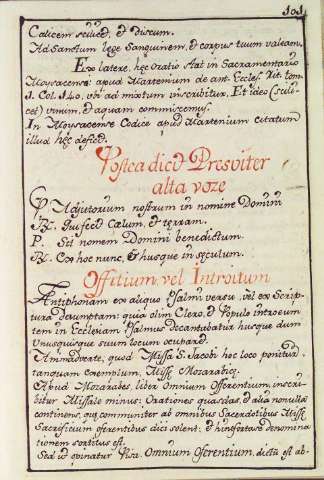 101
Calicem scilicet, et discum.
Ad Sanctum lege Sanguinem, et corpus tuum valeam.
Ex latere, hęc oratio stat in Sacramentario
Moysacense: apud Martenium de ant. Eccles. Rit. tom.
1. Col. 540. ubi ad mixtum inscribitur. Et ideo (scili-
cet) vinum, et aquam commiscemus.
In Moysacense Codice apud Martenium citatum
illud hęc deficit.
Postea dicit Presviter
alta voze
P. Adjutorium nostrum in nomine Domini
R. Qui fecit Cælum, et terram.
P. Sit nomen Domini benedictum.
R. Ex hoc nunc, et husque in seculum.
Offitium, vel Introitum
Antiphonam ex aliquo Psalmi versu, vel ex Scrip-
tura Derumptam: quia olim Clero, et Populo introeun
tem in Ecclesiam Psalmus Decantabatur husque dum
Vnusquisque suum locum ocupard.
Animadverte, quod Missa S. Jacobi hoc loco ponitur
tanquam exemplum, Missę Mozarabicę.
Apud Mozarabes, liber Omnium Offerentium, inscri-
bitur Missale minus: Orationes quasdam, et alia nonulla
continens, quę communiter ab omnibus Sacerdotibus Missę
Sacrificium oferentibus dici solent; et hinc fortasse denomina
tionem sortitus est.
Sed ut opinatur Omnium Oferentium, dictus est ab-